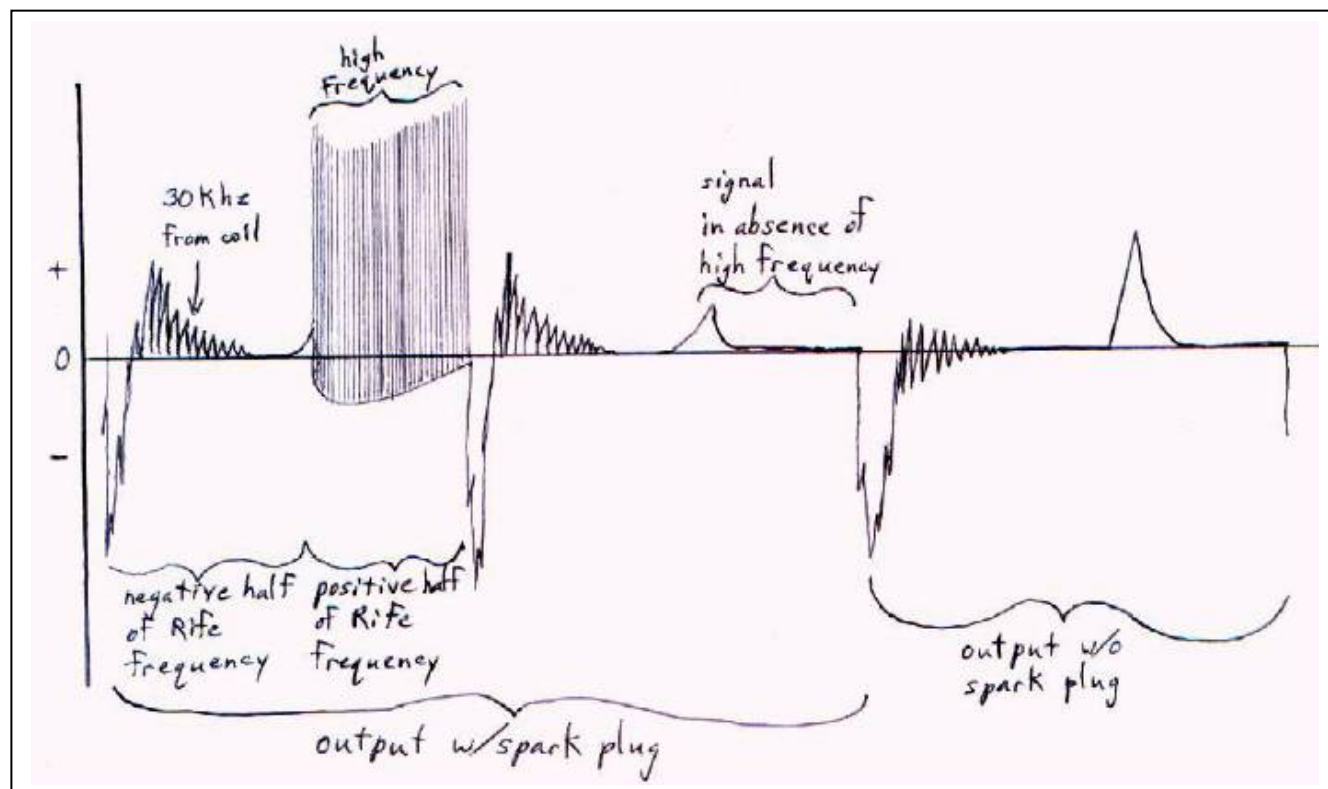 high
Frequency
30Khz
from coil
signal
in absence of
high frequency
+
0
-
negative half
of Rife
frequency
positive half
of Rife
frequency
output w/o
spark plug
output w/spark plug